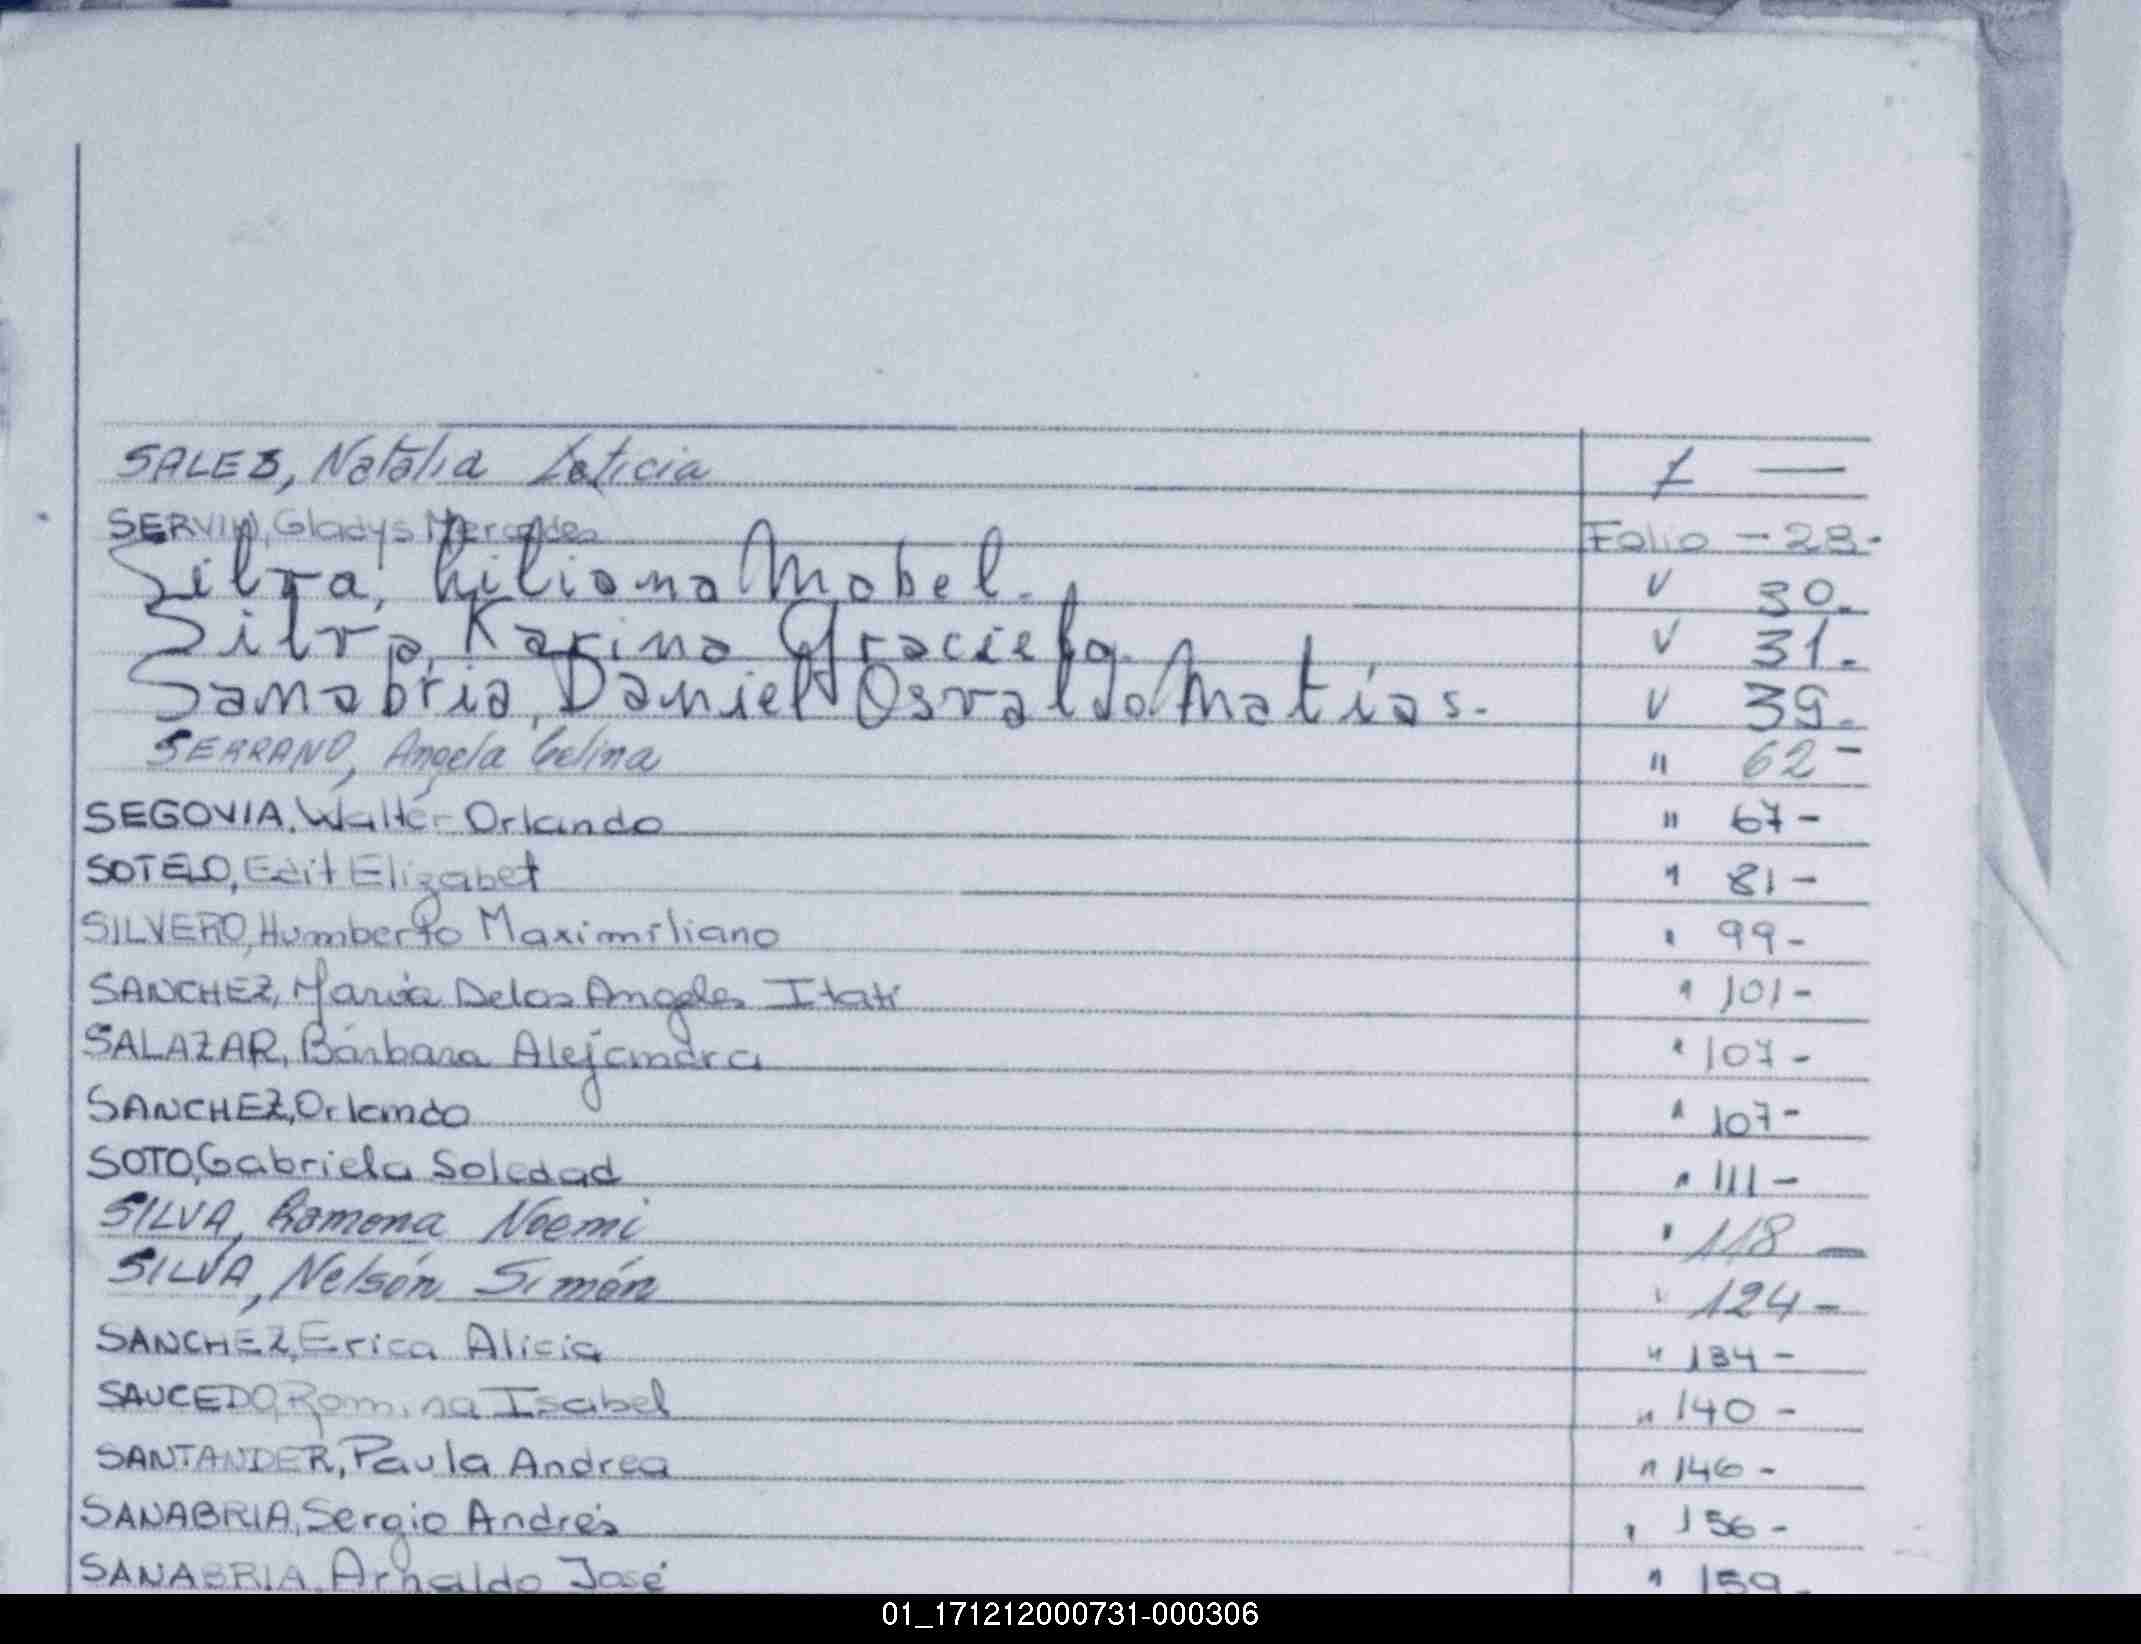 SALES, Natalia Leticia f —
SERVIN, Gladys Mercedes Folio - 28.
Silva, Liliana Mabel. " 30.
Silva, Karina Graciela. " 31.
Sanabria, Daniel Osvaldo Matías. " 39.
SERRANO, Angela Celina " 62 -
SEGOVIA, Walter Orlando " 67 -
SOTELO, Edit Elizabet " 81 -
SILVERO, Humberto Maximiliano " 99 -
SANCHEZ, María Delos Angeles Itatí " 101 -
SALAZAR, Bárbara Alejandra " 107 -
SANCHEZ, Orlando " 107 -
SOTO, Gabriela Soledad " 111 -
SILVA, Ramona Noemi " 118 -
SILVA, Nelsón Simón " 124 -
SANCHEZ, Erica Alicia " 134 -
SAUCEDO, Romina Isabel " 140 -
SANTANDER, Paula Andrea " 146 -
SANABRIA, Sergio Andrés " 156 -
SANABRIA, Arnaldo José " 159 -
01_171212000731-000306